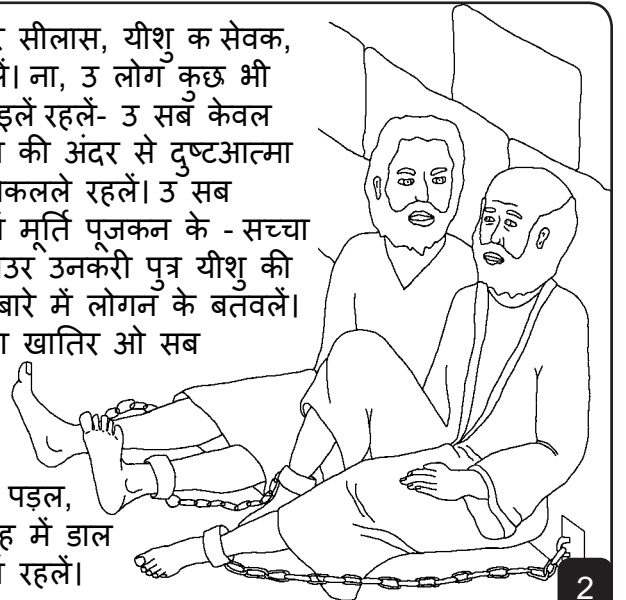 सीलास, यीशु क सेवक,
ना, उ लोग कुछ भी
रहलें- उ सब केवल
की अंदर से दुष्टआत्मा
रहलें। उ सब
मूर्ति पूजकन के - सच्चा
उनकरी पुत्र यीशु की
बारे में लोगन के बतवलें।
खातिर ओ सब
पड़ल,
में डाल
रहलें।
2